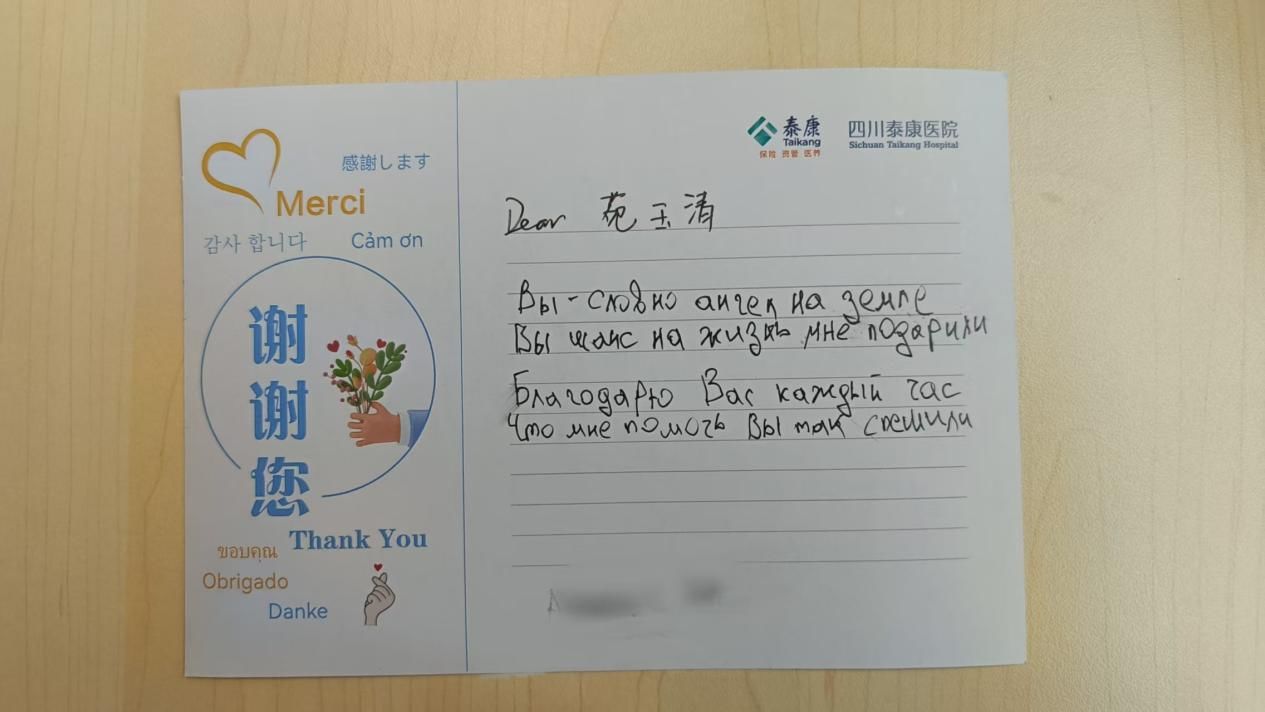 感謝します
Merci
감사 합니다
Cảm ơn
谢谢您
ขอบคุณ
Thank You
Obrigado
Danke
泰康
Taikang
保险 资管 医养
四川泰康医院
Sichuan Taikang Hospital
Dear 苑玉清
Вы - словно ангел на земле
Вы шанс на жизнь мне подарили
Благодарю Вас каждый час
Что мне помочь Вы так спешили